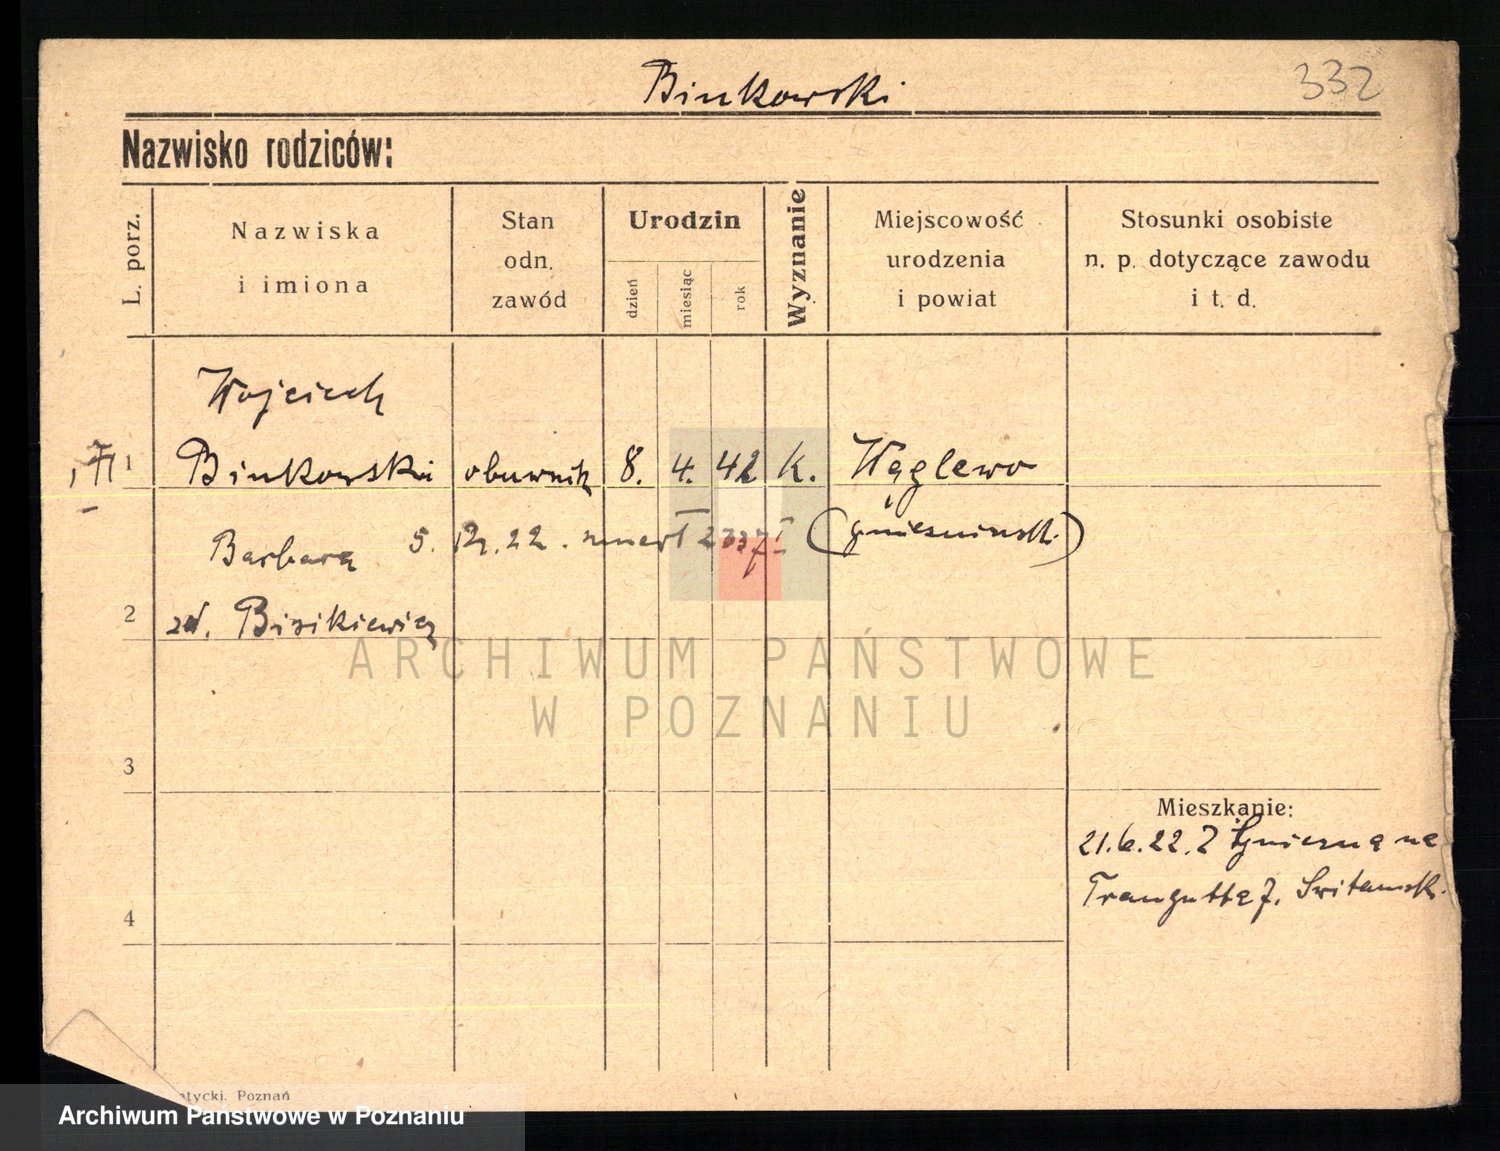 Binkowski 332
Nazwisko rodziców:
L. porz.
Nazwiska
i imiona
Stan
odn.
zawód
Urodzin
dzień
miesiąc
rok
Wyznanie
Miejscowość
urodzenia
i powiat
Stosunki osobiste
n. p. dotyczące zawodu
i t. d.
Wojciech
1 Binkowski obuwnik 8. 4. 42 K. Węglewo
Barbara 5. 12. 22. zmarł
2 zd.
3
Mieszkanie:
21.6.22. Z Gniezna na
4
Poznań
ARCHIWUM PAŃSTWOWE
W POZNANIU
Archiwum Państwowe w Poznaniu